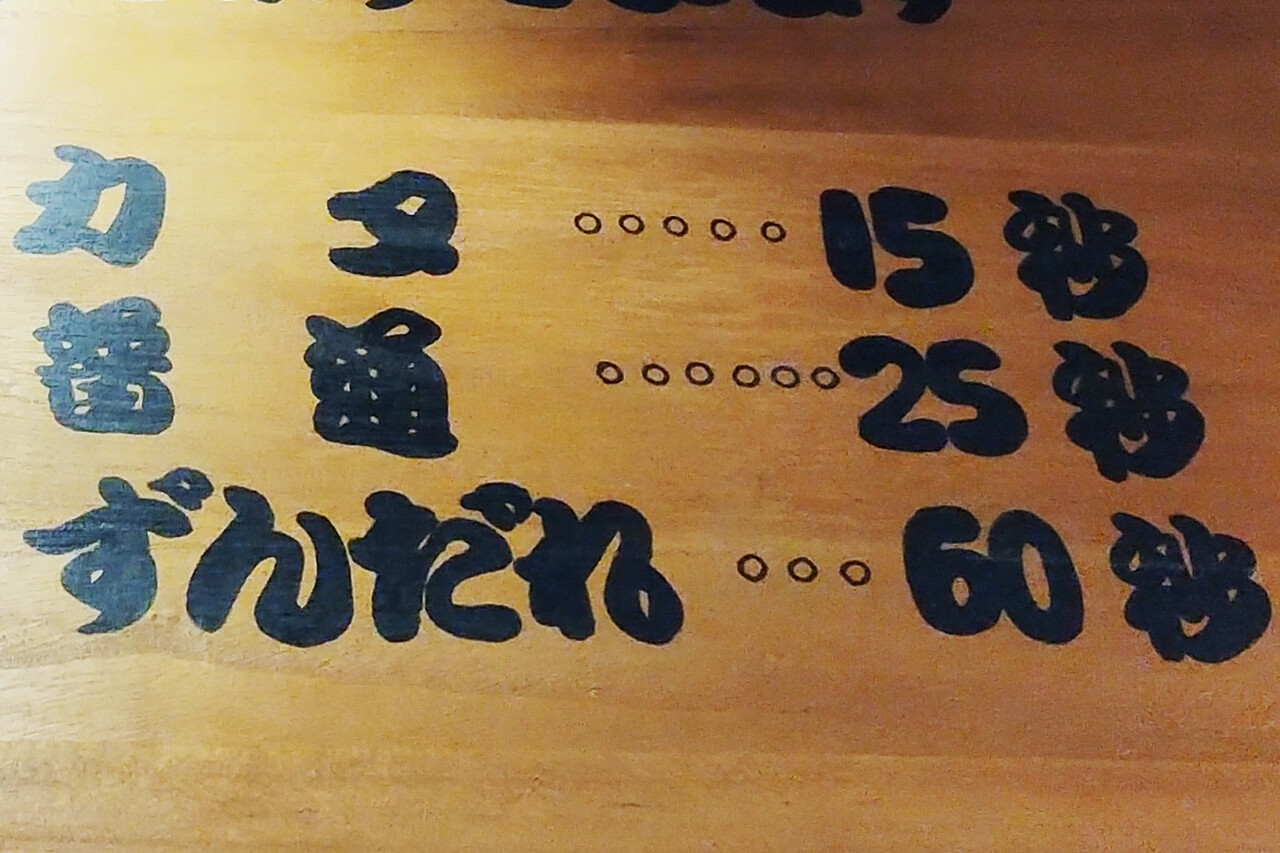 カタ○○○○○15秒
普通○○○○○○25秒
ずんだれ○○○60秒